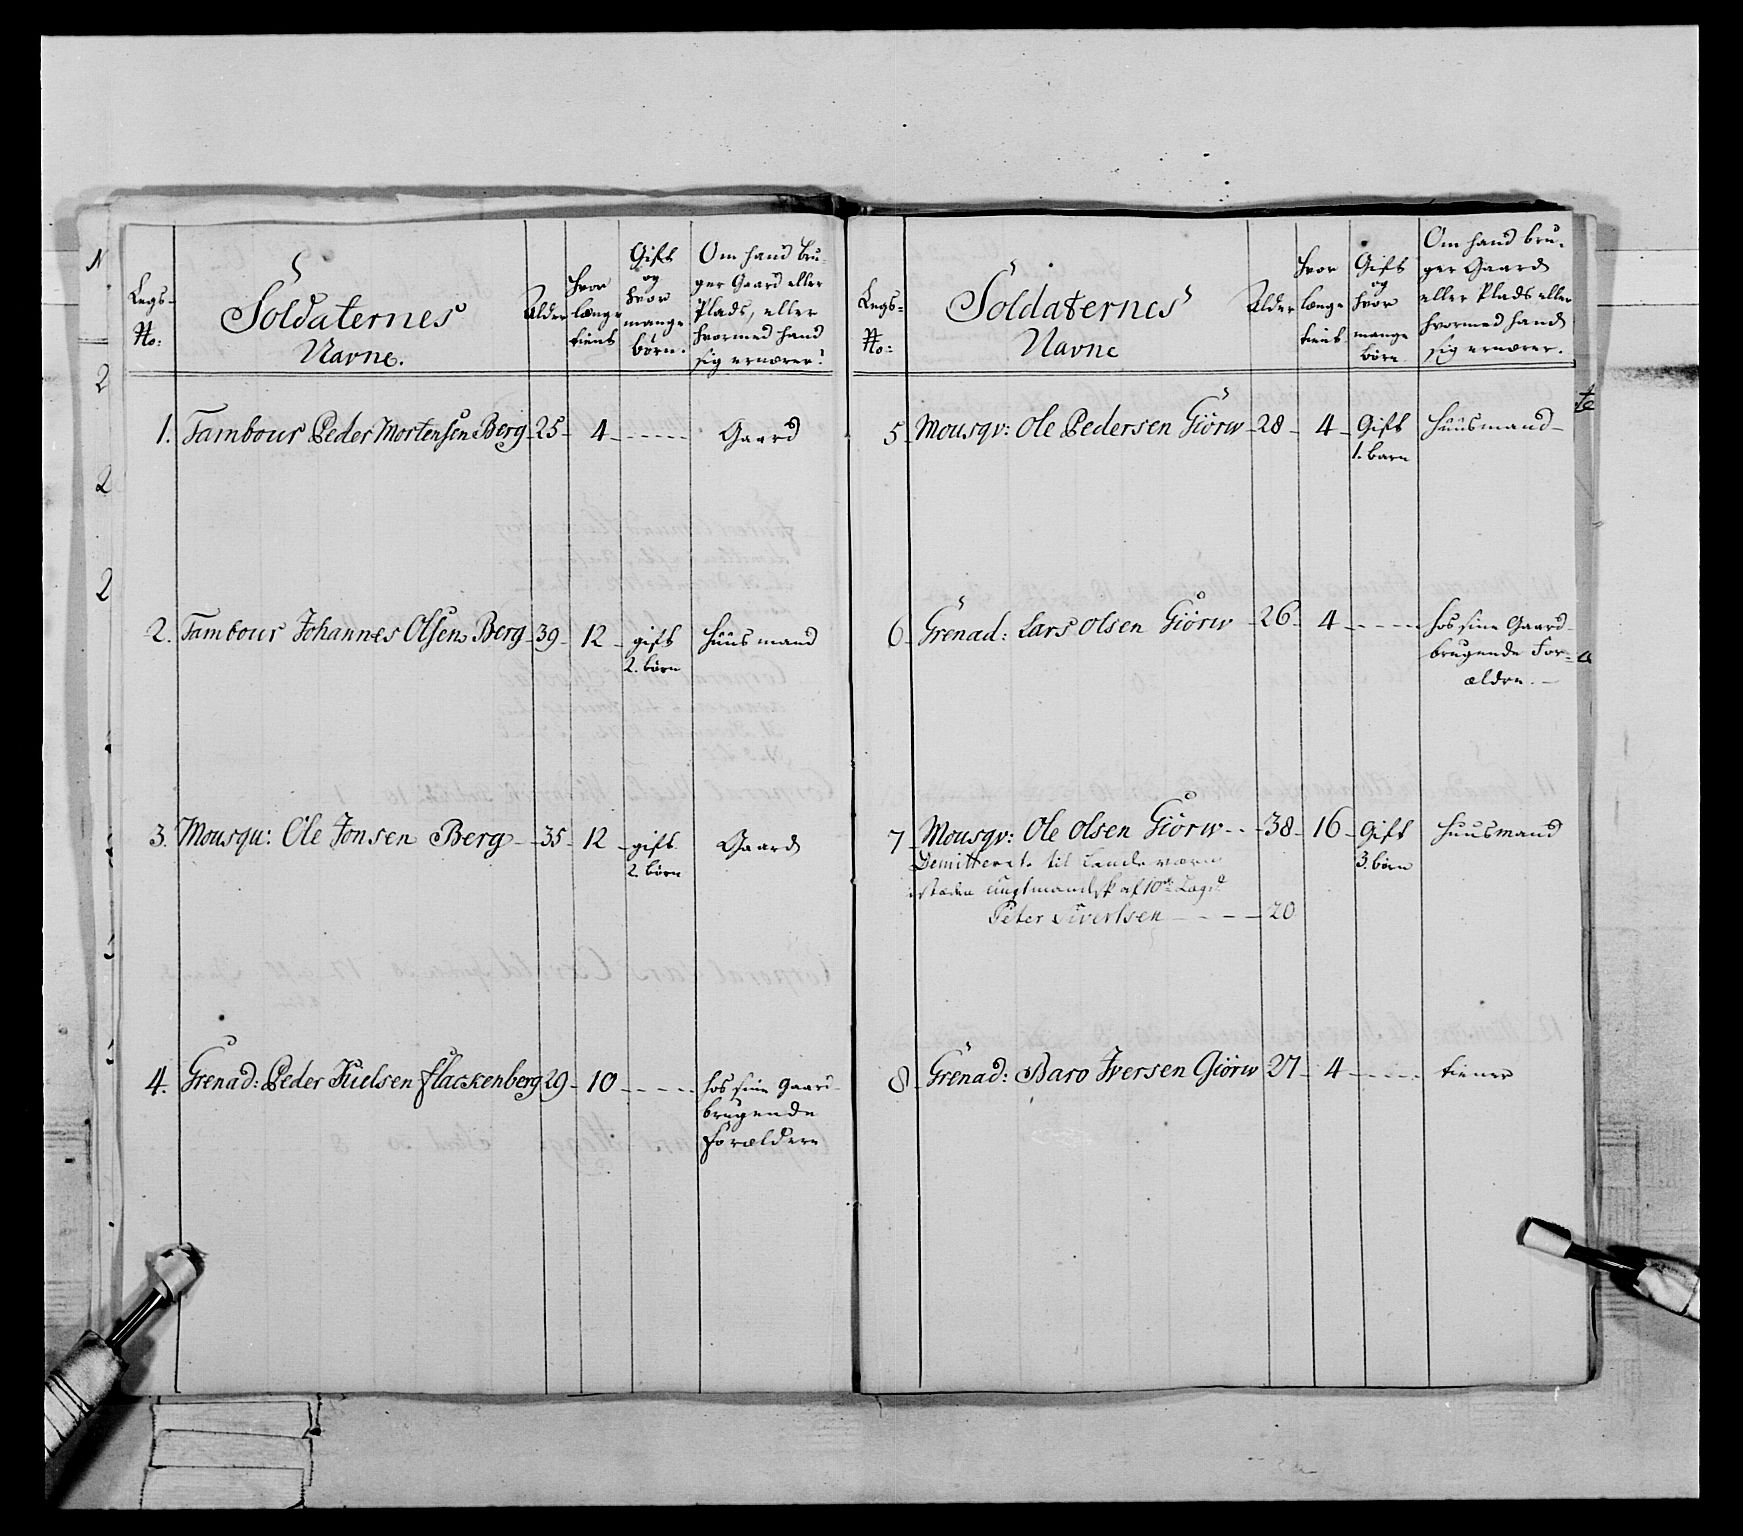 Legs-
No:
Soldaternes
Navne.
Alder
hvor
længe
tient
Gift
og
hvor
mange
børn.
Om hand bru-
ger Gaard eller
Plads, eller
hvormed hand
sig ernærer?
1. Tambour Peder Mortensen Berg - 25 - 4 - - - - - Gaard
2. Tambour Johannes Olsen Berg - 39 - 12 - gift Huusmand
2. børn
3. Mousqu: Ole Jonsen Berg - - 35 - 12 - gift Gaard
2. børn
4. Grenad: Peder Nielsen flackenberg 29 - 10 - - - - hos sine Gaard-
brugende
Forældere
Legs-
No:
Soldaternes
Navne
Alder
hvor
længe
tient
Gift
og
hvor
mange
børn
Om hand bru-
ger Gaard
eller Plads eller
hvormed hand
sig ernærer.
5 - Mousqv: Ole Pedersen Giörw - 28 - 4 - Gift Huusmand -
1. barn
6 - Grenad: Lars Olsen Giörw - 26 - 4 - - - - hos sine Gaard-
brugende For=
ældre. -
7 - Mousqv: Ole Olsen Giörw - - 38 - 16 - Gift Huusmand
Demitteret til Lande værn 3. børn
istæden ungtmandsk af 10de Lægd:
Peter Sivertsen - - - - 20
8 - Grenad: Baro Iversen Giörw 27 - 4 - - - - tiener